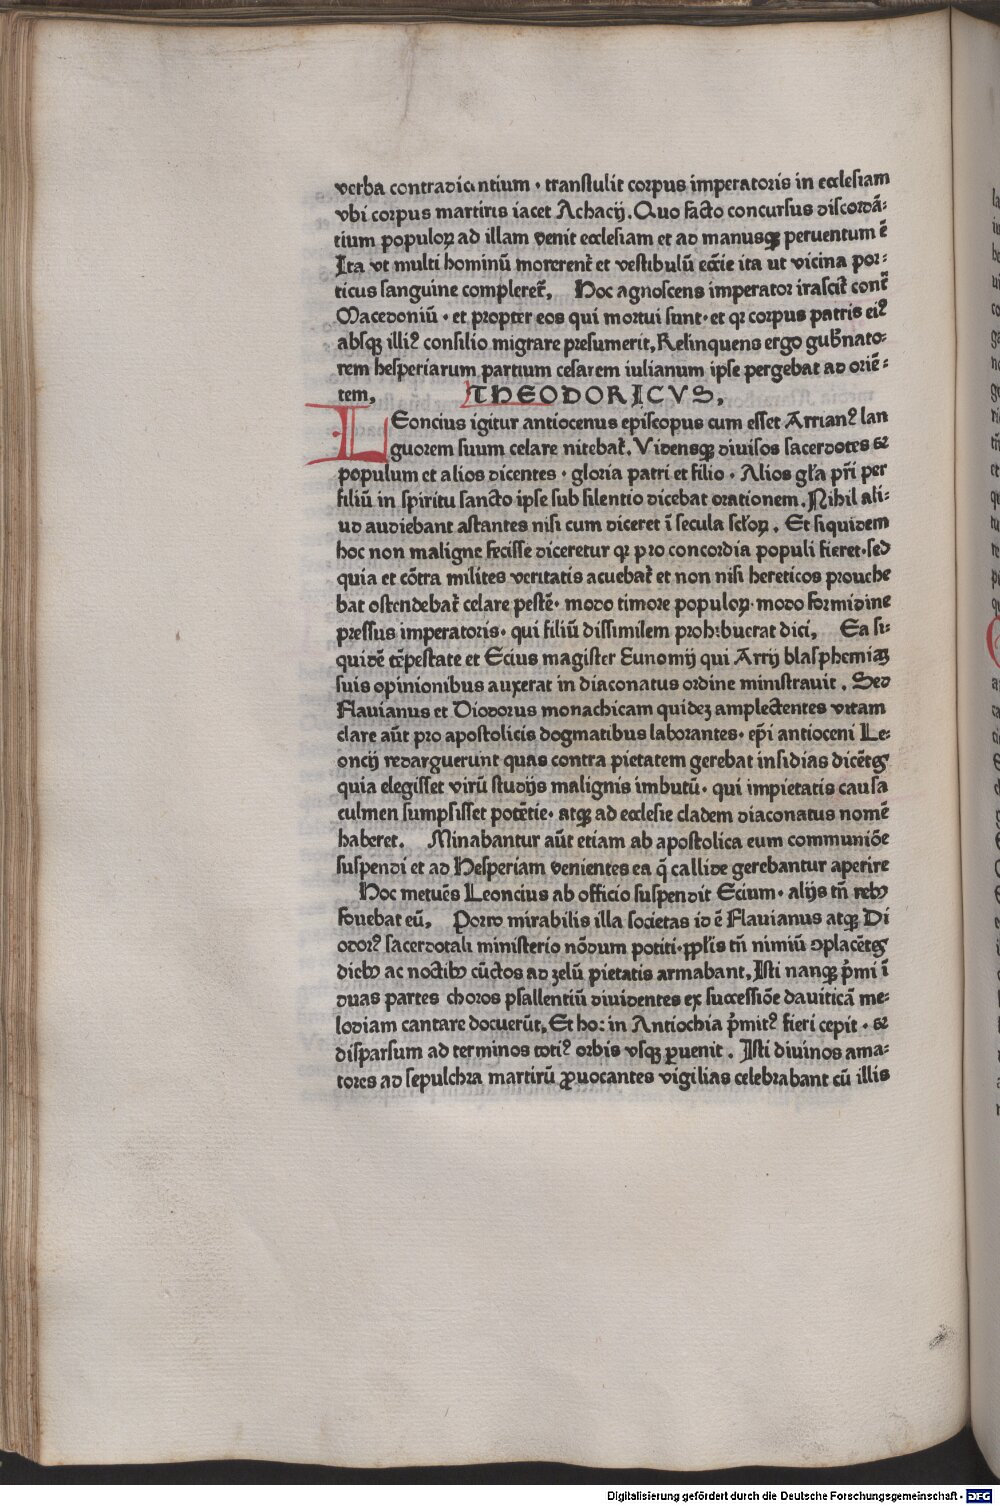 verba contradicantium · transtulit corpus imperatoris in ecclesiam
vbi corpus martiris iacet Achacij. Quo facto concursus discordā⸗
tium populoꝝ ad illam venit ecclesiam et ad manusqꝫ peruentum ē
Ita vt multi hominū morerent᷑ et vestibulū eccīe ita ut vicina por⸗
ticus sanguine compleret᷑, Hoc agnoscens imperator irascit᷑ contr̄
Macedoniū · et propter eos qui mortui sunt · et qr corpus patris eiꝰ
absqꝫ illiꝰ consilio migrare presumerit, Relinquens ergo gub̄nato⸗
rem hesperiarum partium cesarem iulianum ipse pergebat ad oriē⸗
tem, THEODORICVS,
LEoncius igitur antiocenus episcopus cum esset Arrianꝰ lan
guorem suum celare nitebat᷑. Vidensqꝫ diuisos sacerdotes et
populum et alios dicentes · gloria patri et filio · Alios gl̄a pr̄i per
filiū in spiritu sancto ipse sub silentio dicebat orationem. Nihil ali⸗
ud audiebant astantes nisi cum diceret ī secula scl̄oꝝ. Et siquidem
hoc non maligne fecisse diceretur qr pro concordia populi fieret · sed
quia et cōtra milites veritatis acuebat᷑ et non nisi hereticos prouehe
bat ostendebat᷑ celare pestē · modo timore populoꝝ · modo formidine
pressus imperatoris · qui filiū dissimilem prohibuerat dici, Ea si⸗
quidē tēpestate et Ecius magister Eunomij qui Arrij blasphemiaꝫ
suis opinionibus auxerat in diaconatus ordine ministrauit. Sed
Flauianus et Diodorus monachicam quideꝫ amplectentes vitam
clare aūt pro apostolicis dogmatibus laborantes · ep̄i antioceni Le⸗
oncij redarguerunt quas contra pietatem gerebat insidias dicētes
quia elegisset virū studijs malignis imbutū · qui impietatis causa
culmen sumpsisset potētie · atqꝫ ad ecclesie cladem diaconatus nomē
haberet. Minabantur aūt etiam ab apostolica eum communiōe
suspendi et ad Hesperiam venientes ea q̄ callide gerebantur aperire
Hoc metuēs Leoncius ab officio suspendit Ecium · alijs tn̄ rebꝰ
fouebat eū, Porro mirabilis illa societas id ē Flauianus atqꝫ Di
odorꝰ sacerdotali ministerio nōdum potiti · ppl̄is tn̄ nimiū ↄplacētes
diebꝰ ac noctibꝰ cūctos ad zelū pietatis armabant, Isti nanqꝫ p̄mi ī
duas partes choros psallentiū diuidentes ex successiōe dauiticā me⸗
lodiam cantare docuerūt, Et hoc in Antiochia p̄mitꝰ fieri cepit · et
disparsum ad terminos totiꝰ orbis vsqꝫ ꝑuenit. Isti diuinos ama⸗
tores ad sepulchra martirū ꝓuocantes vigilias celebrabant cū illis
Digitalisierung gefördert durch die Deutsche Forschungsgemeinschaft - DFG